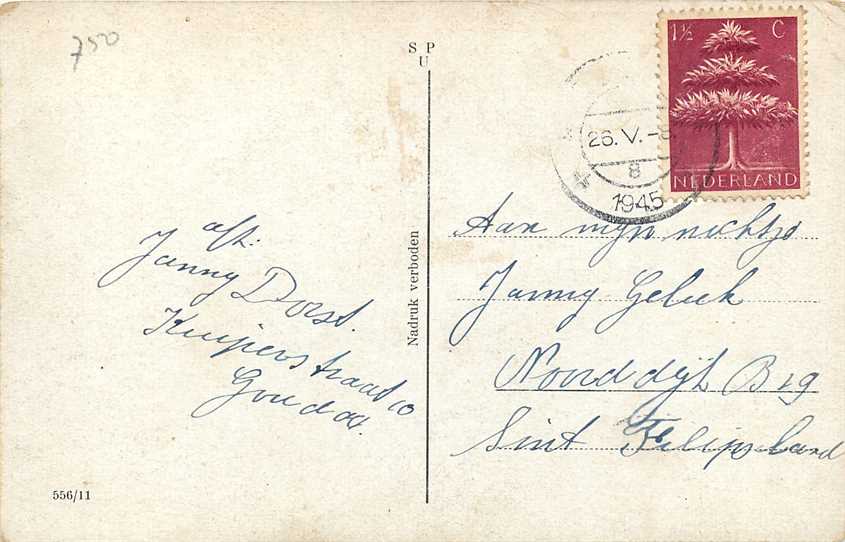 750
S P
U
1½ C
NEDERLAND
26. V. -8
8
1945
afz:
Janny Dorst.
Kuiperstraat 10
Gouda.
Nadruk verboden
Aan mijn nichtje
Janny Geluk
Noorddijk B 19
Sint Filipsland
556/11